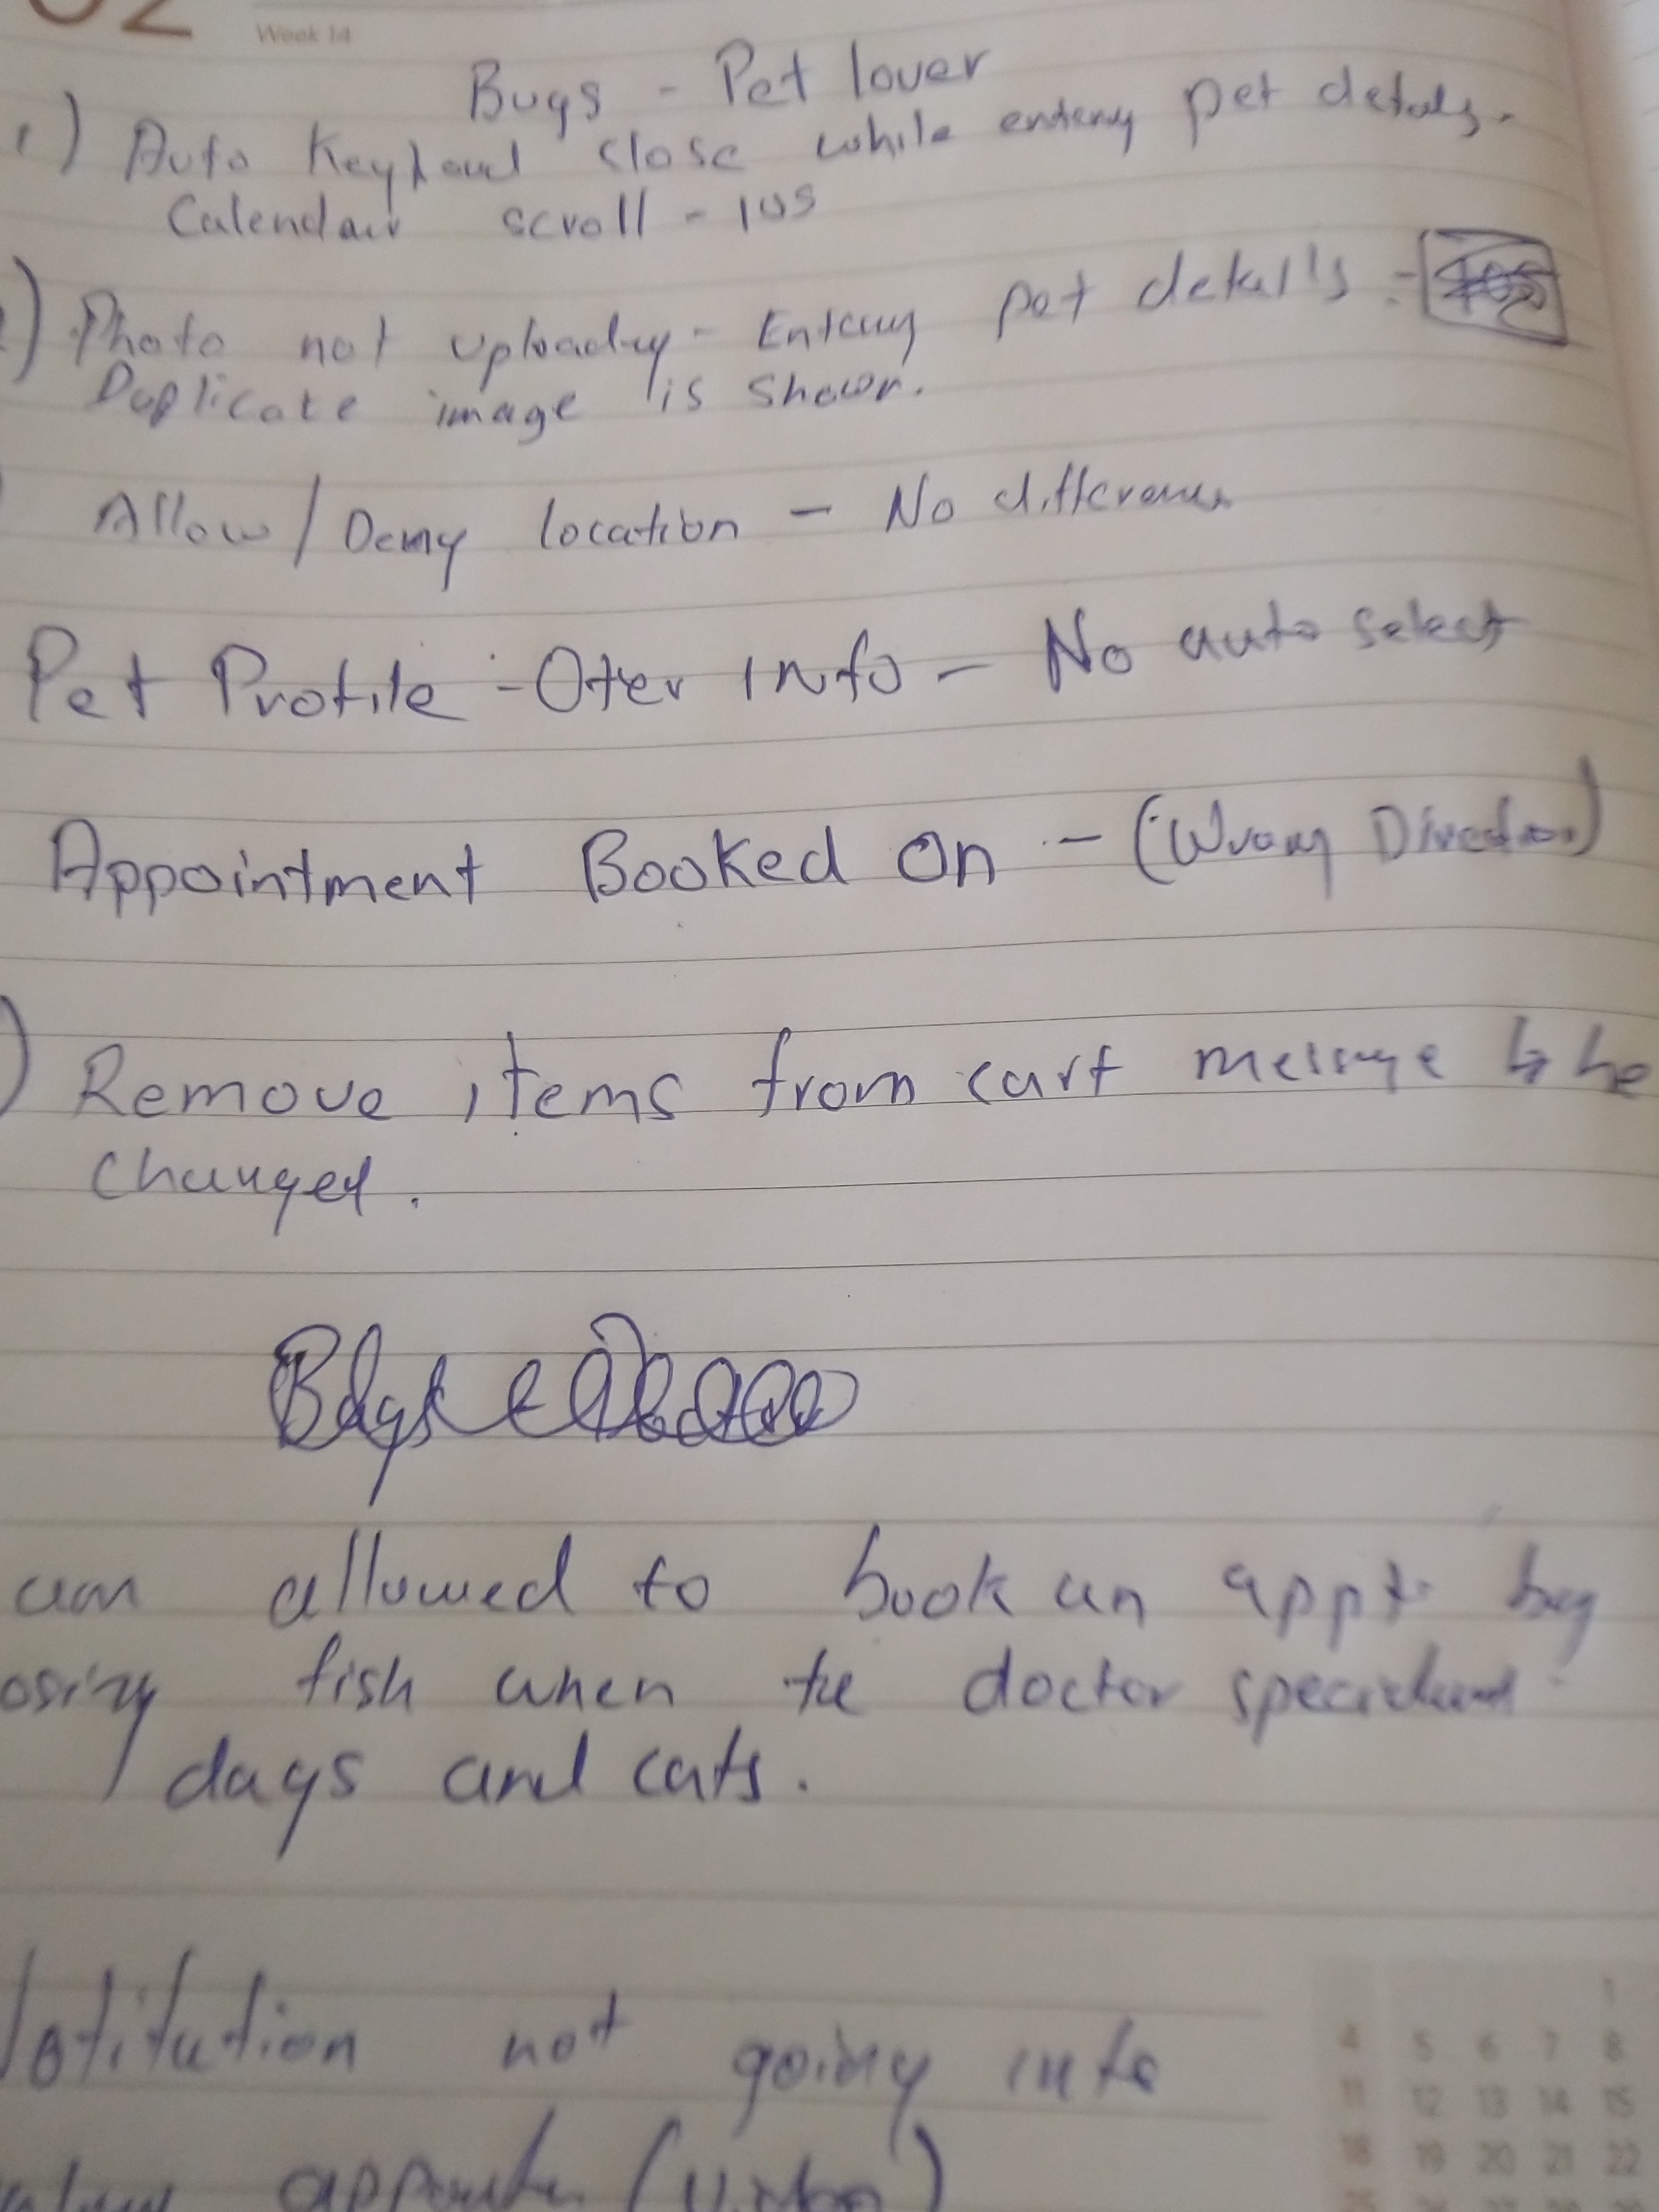 02
Week 14
Bugs - Pet lover
1) Auto Keyboard close while entering pet details.
Calendar scroll - IOS
) Photo not uploading - Entering pet details -
Duplicate image is shown.
Allow / Deny location - No difference
Pet Profile - Oter Info - No auto select
Appointment Booked On - (Wrong Direction)
) Remove items from cart message to be
changed.
am allowed to book an appt. by
osing fish when the doctor
dogs and cats.
not going into
1
4 5 6 7 8
11 12 13 14 15
18 19 20 21 22